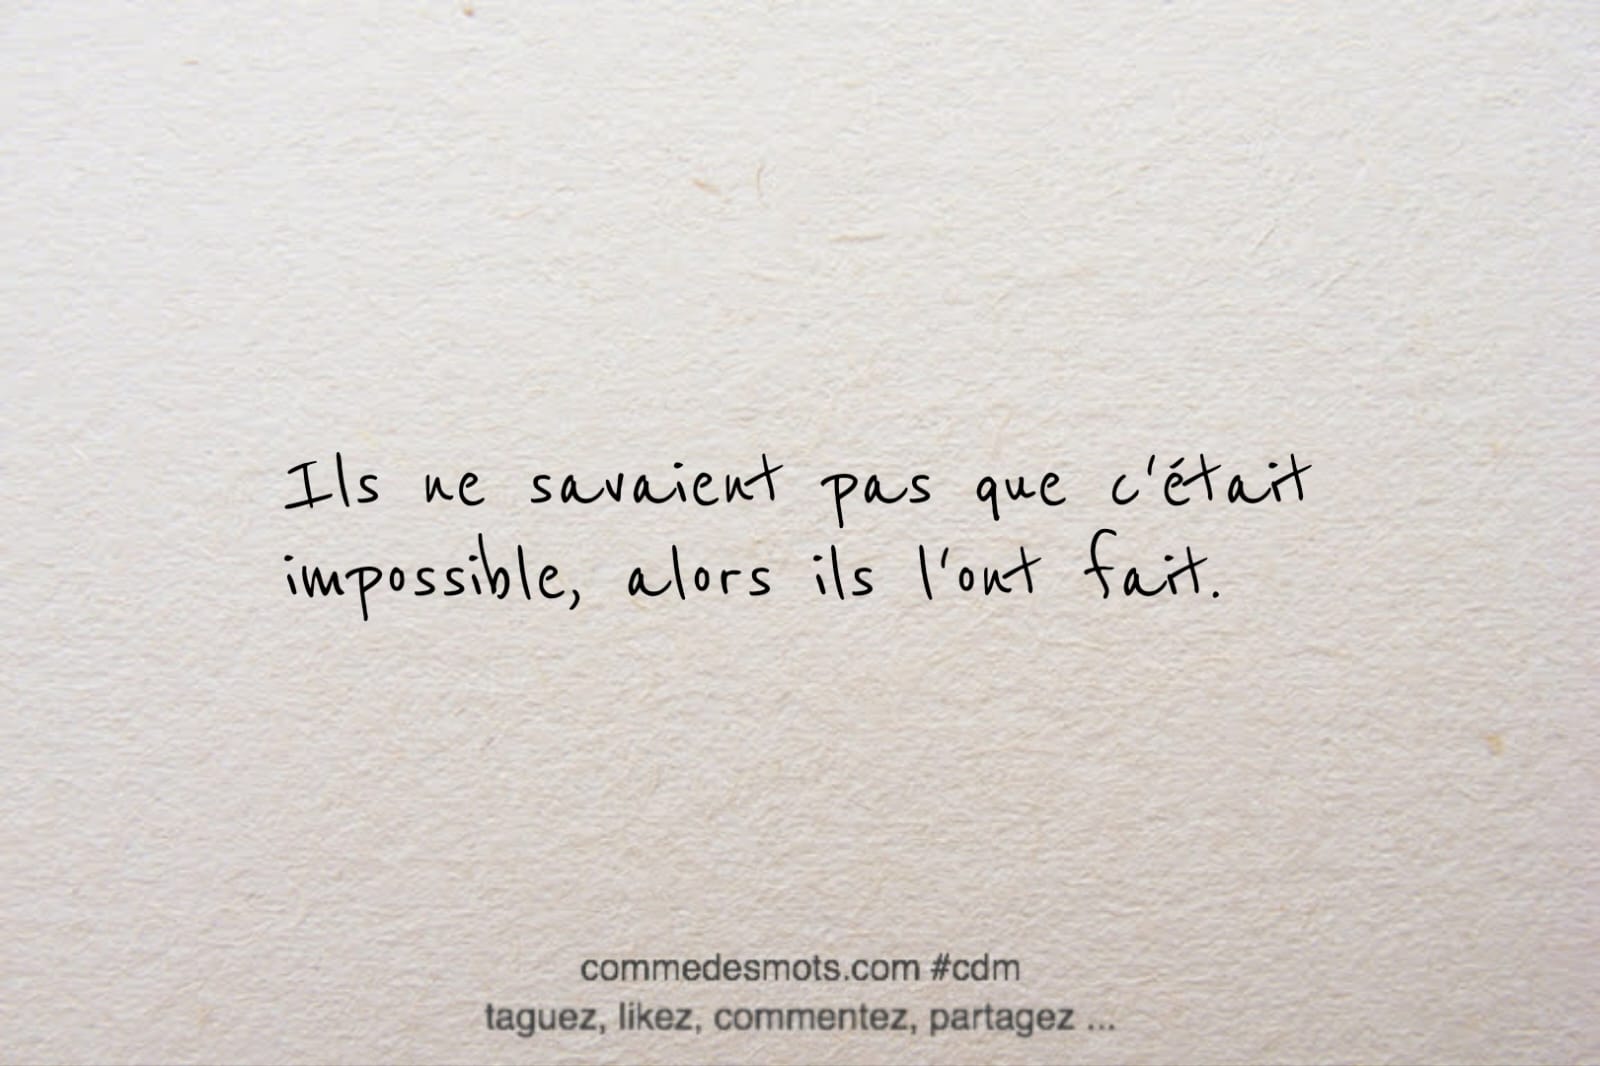 Ils ne savaient pas que c'était
impossible, alors ils l'ont fait.
commedesmots.com #cdm
taguez, likez, commentez, partagez ...